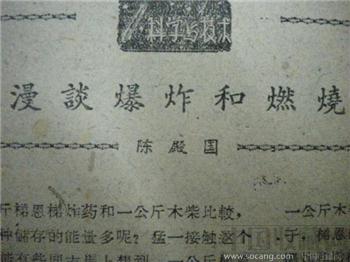 科学与技术
漫談爆炸和燃燒
陈殿国
斤梯恩梯炸药和一公斤木柴比較，
一公斤木
种储存的能量多呢？猛一接触这个
于，梯恩
www.socang.com